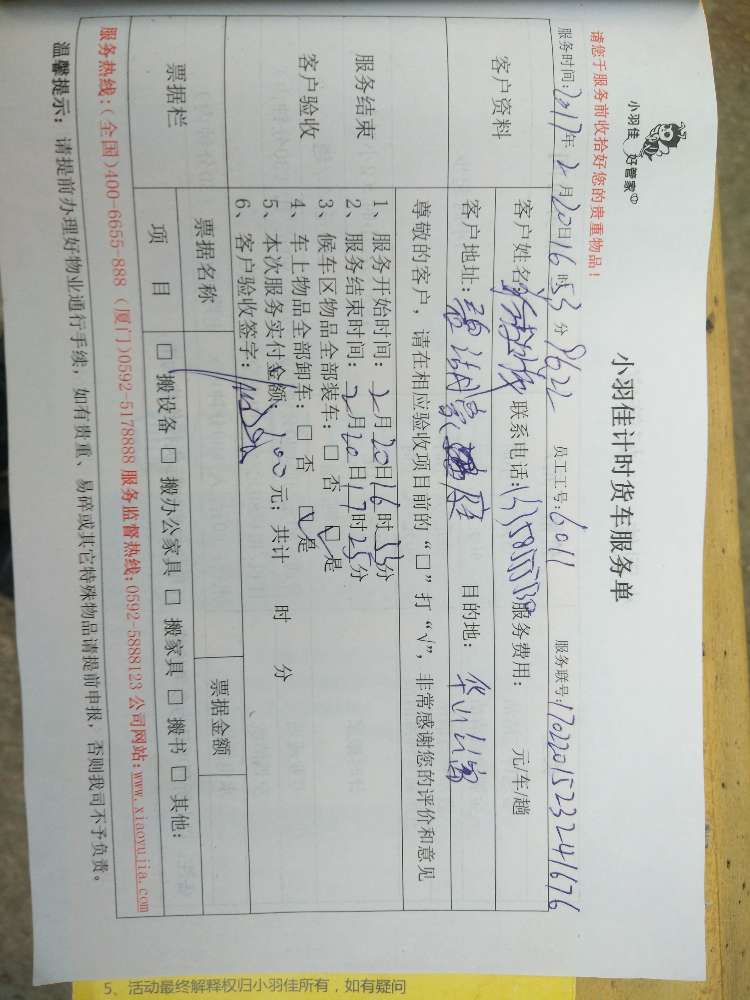 小羽佳 好管家
小羽佳计时货车服务单
请您于服务前收拾好您的贵重物品！
服务时间：2017年2月20日16时53分 8622 员工工号：6011 服务联号：1702201523241676
客户资料
客户姓名： 联系电话： 服务费用： 元/车/趟
客户地址： 目的地：
服务结束
客户验收
尊敬的客户，请在相应验收项目前的“□”打“√”，非常感谢您的评价和意见
1、服务开始时间：2月20日16时53分
2、服务结束时间：2月20日17时25分
3、候车区物品全部装车：□ 否 ☑是
4、车上物品全部卸车：□ 否 ☑是
5、本次服务实付金额：200元；共计 时 分
6、客户验收签字：
票据栏
票据名称 票据金额
项 目 □ 搬设备 □ 搬办公家具 □ 搬家具 □ 搬书 □ 其他：
服务热线：(全国)400-6655-888 (厦门)0592-5178888 服务监督热线：0592-5888123 公司网站：www.xiaoyujia.com
温馨提示：请提前办理好物业通行手续，如有贵重、易碎或其它特殊物品请提前申报，否则我司不予负责。
5、活动最终解释权归小羽佳所有，如有疑问